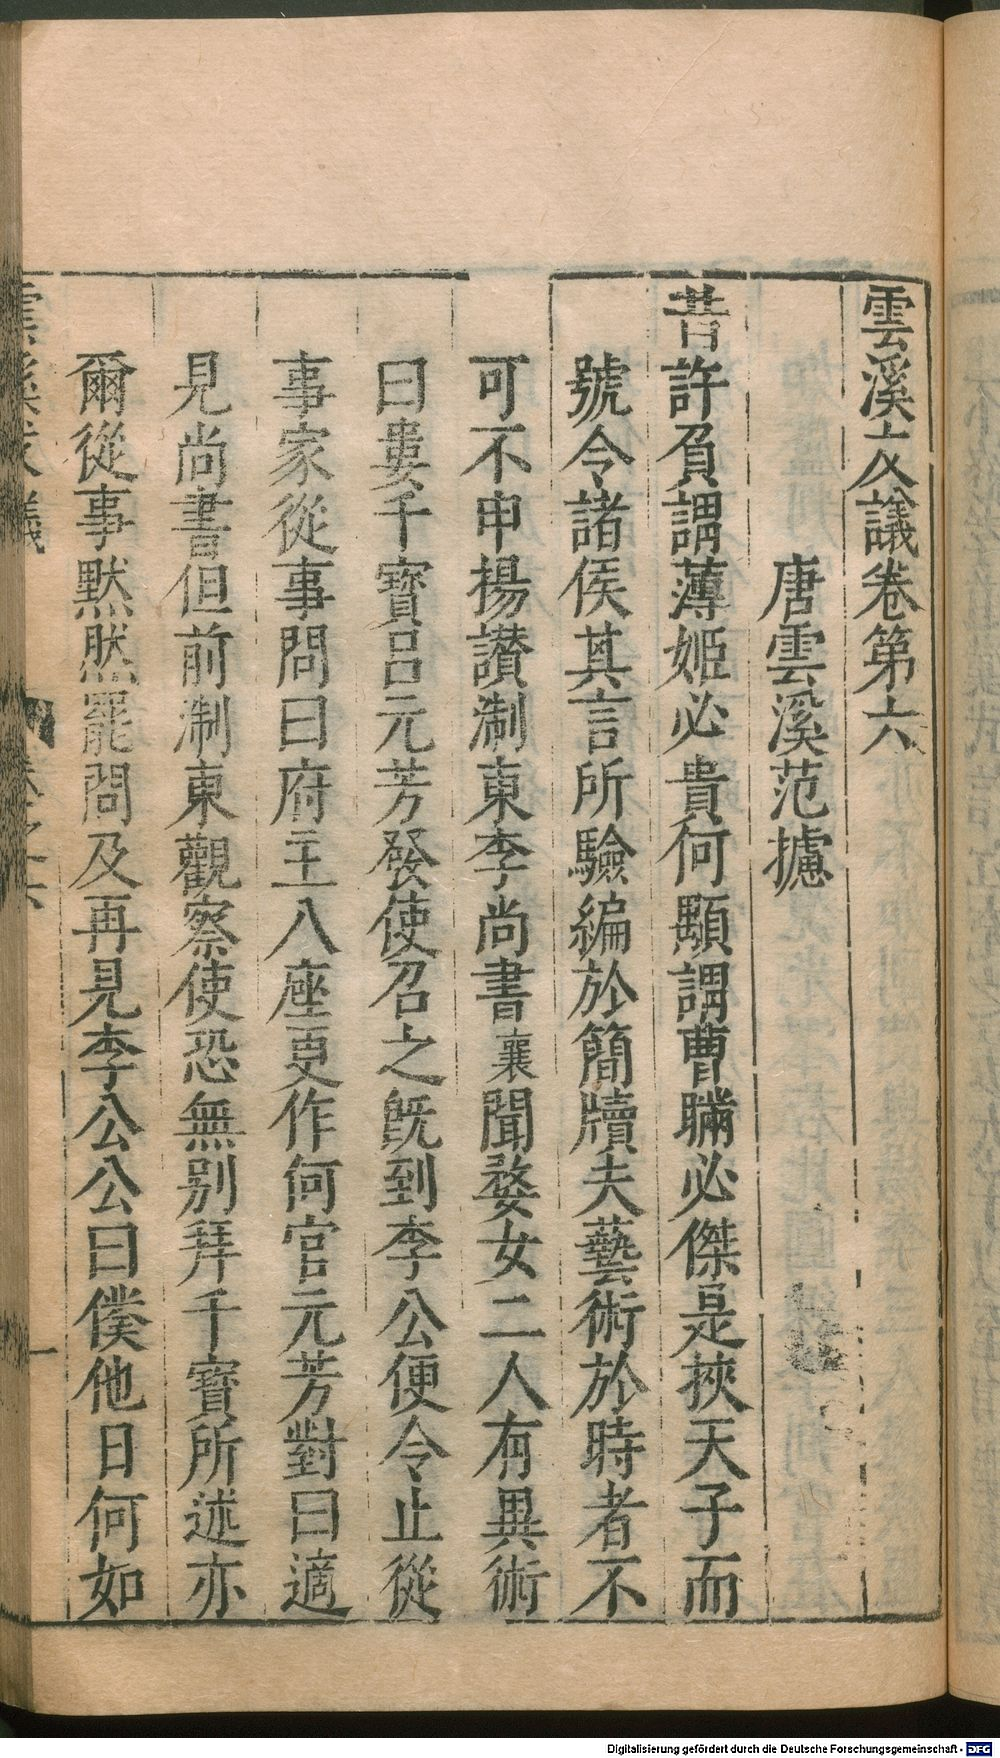 雲溪友議卷第六
唐雲溪范攄
昔許負謂薄姬必貴何顒謂曹瞞必傑是挾天子而
號令諸侯其言所驗編於簡牘夫藝術於時者不
可不申揚讃淛東李尚書襄聞婺女二人有異術
曰婁千寶呂元芳發使召之既到李公便令止從
事家從事問曰府主八座更作何官元芳對曰適
見尚書但前淛東觀察使恐無别拜千寶所述亦
爾從事黙然罷問及再見李公公曰僕他日何如
雲溪友議
卷之六
一
Digitalisierung gefördert durch die Deutsche Forschungsgemeinschaft - DFG